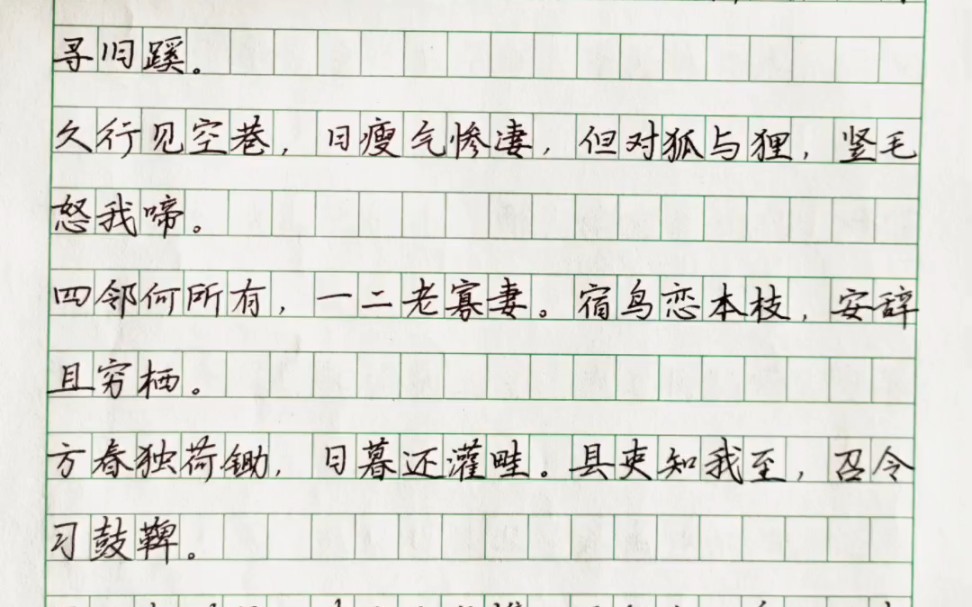 寻旧蹊。
久行见空巷，日瘦气惨凄，但对狐与狸，竖毛
怒我啼。
四邻何所有，一二老寡妻。宿鸟恋本枝，安辞
且穷栖。
方春独荷锄，日暮还灌畦。县吏知我至，召令
习鼓鞞。